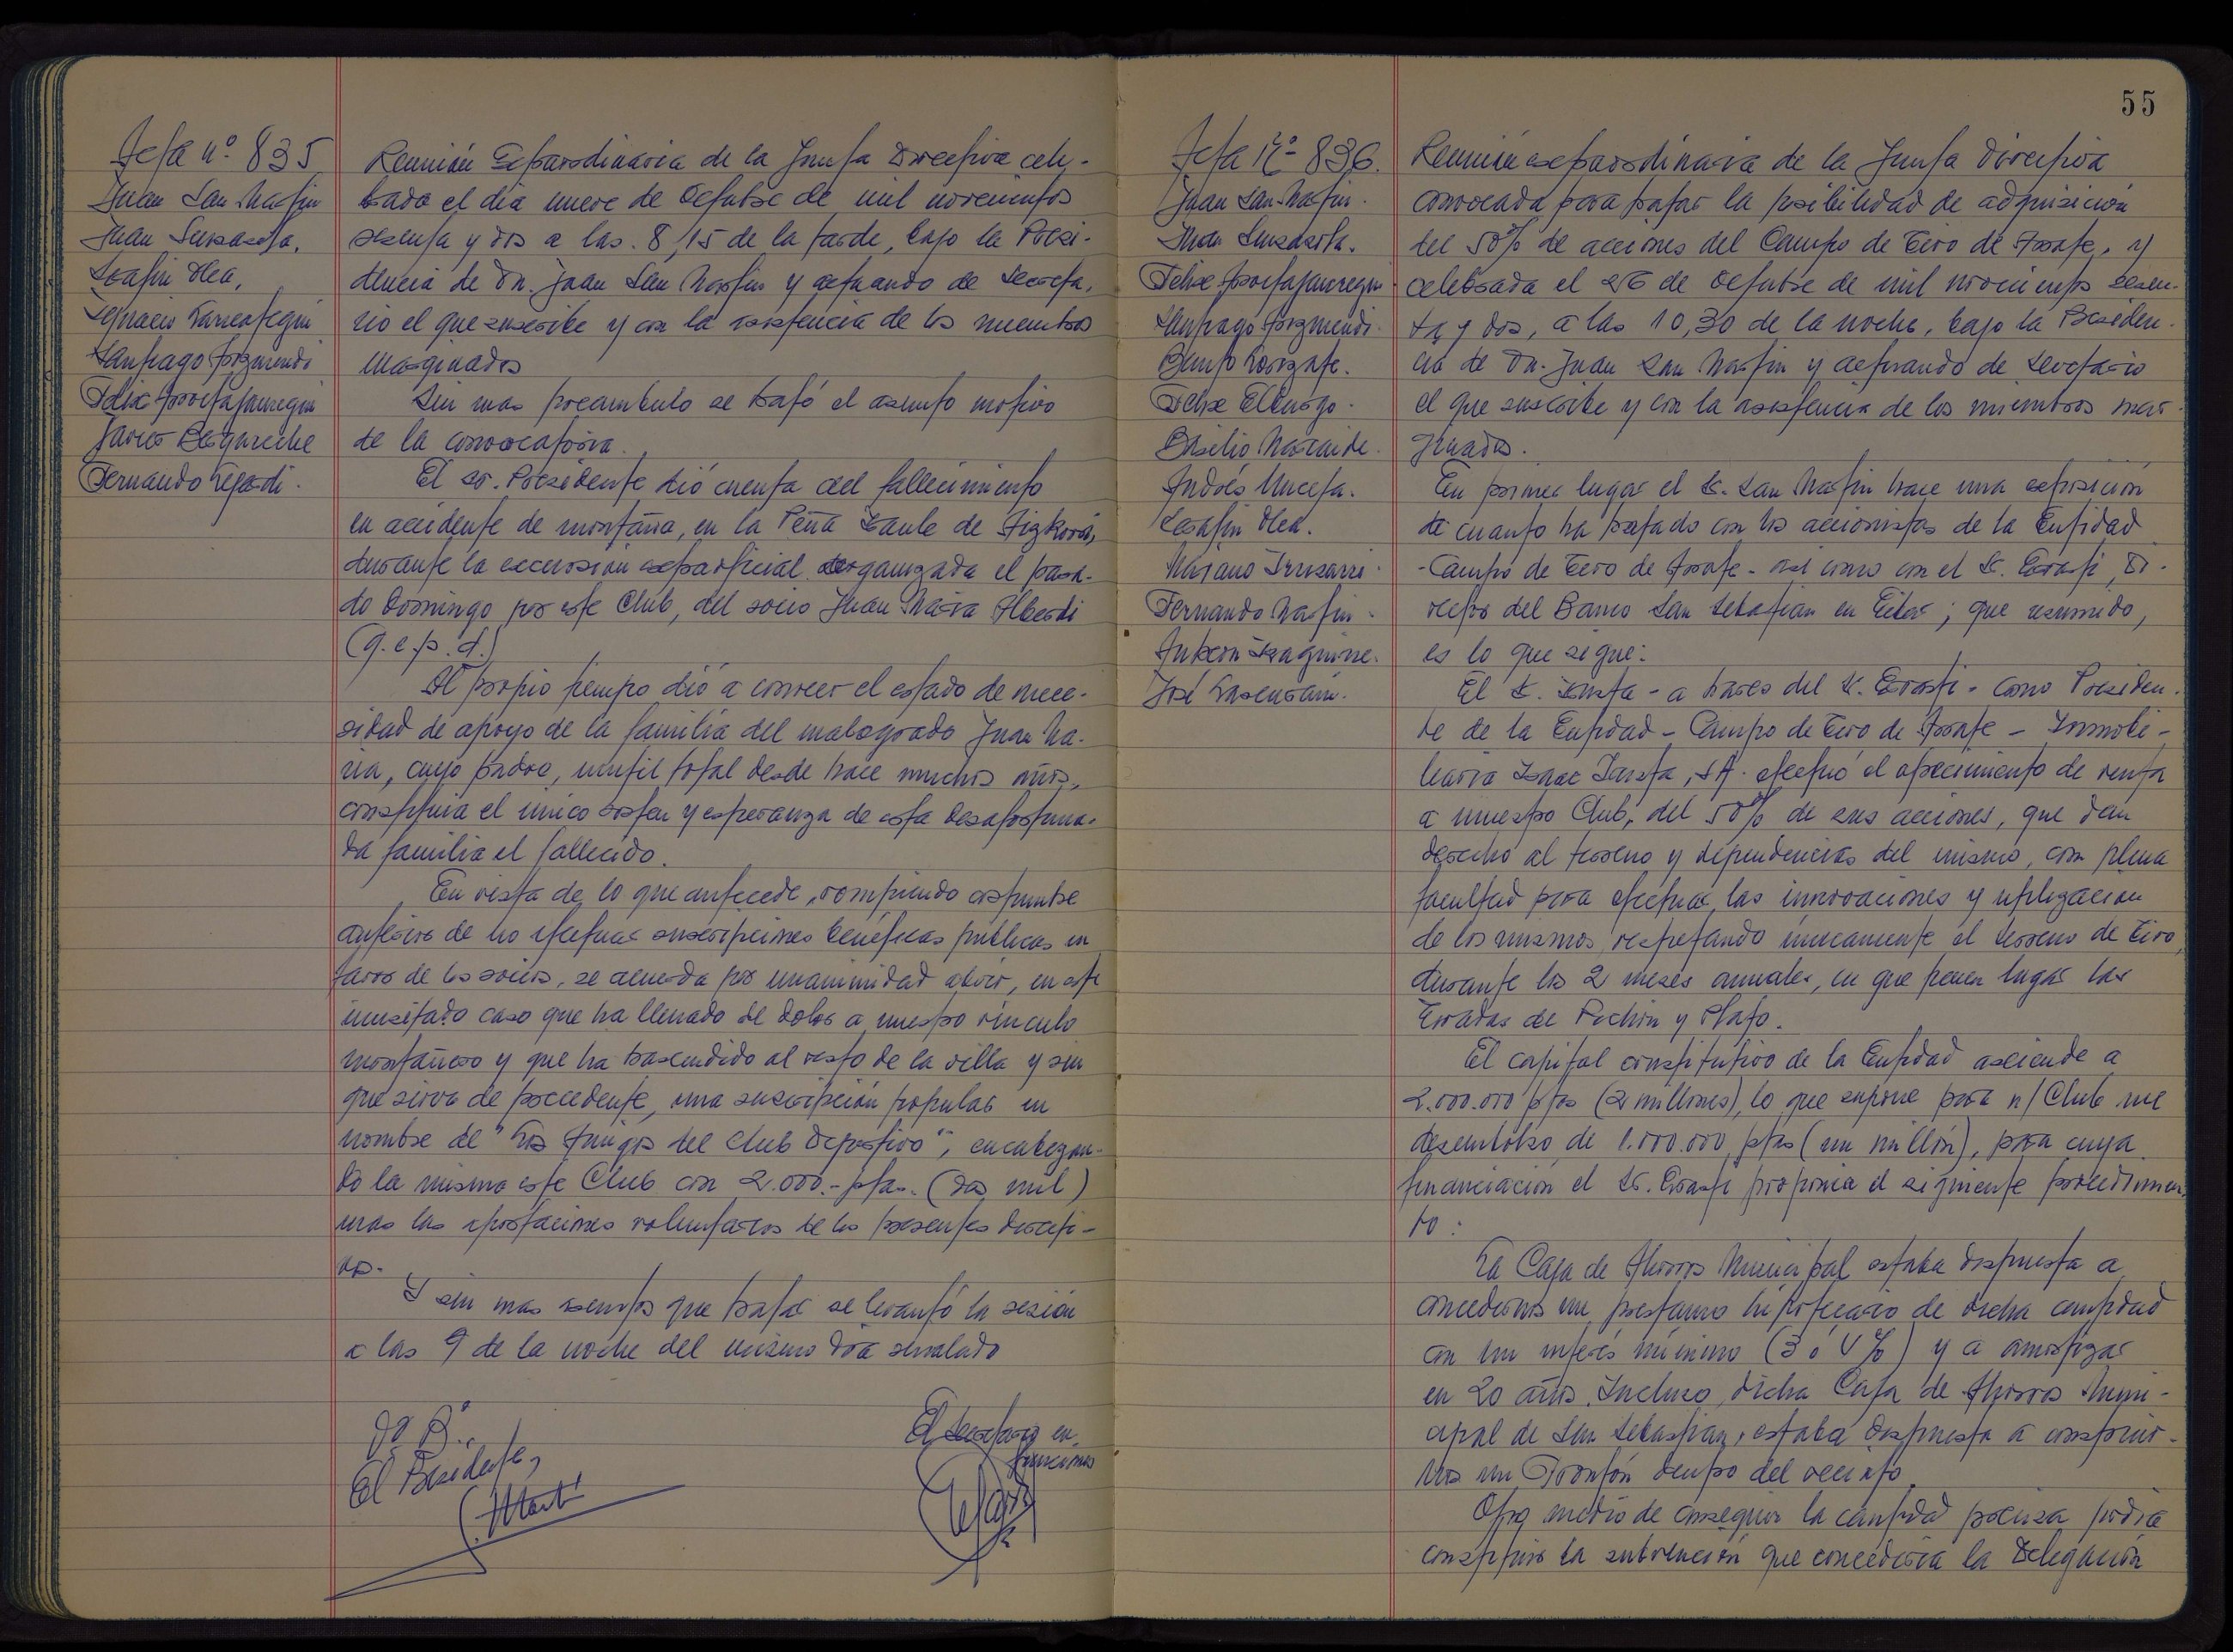 Acta nº 835
Juan San Martin
Juan Sarasketa.
Serafin Olea.
Ignacio Larreategui
Santiago Arizmendi
Felix Aportajauregui
Javier Bergareche
Fernando Legardi.
Reunión Extraordinaria de la Junta Directiva cele-
brada el dia nueve de Octubre de mil novecientos
sesenta y dos a las 8,15 de la tarde, bajo la Presi-
dencia de Dn. Juan San Martin y actuando de Secreta-
rio el que suscribe y con la asistencia de los miembros
marginados
Sin mas preambulo se trató el asunto motivo
de la convocatoria.
El sr. Presidente dió cuenta del fallecimiento
en accidente de montaña, en la Peña de Aizkorri,
durante la excursión extraoficial organizada el pasa-
do Domingo por este Club, del socio Juan Maria Alberdi
(q.e.p.d.)
Al propio tiempo dió a conocer el estado de nece-
sidad de apoyo de la familia del malogrado Juan Ma-
ria, cuyo padre, inutil total desde hace muchos años,
constituia el unico sosten y esperanza de esta desafortuna-
da familia el fallecido.
En vista de lo que antecede, rompiendo costumbre
anterior de no efectuar suscripciones benéficas públicas en
favor de los socios, se acuerda por unanimidad abrir, en este
inusitado caso que ha llenado de dolor a nuestro vinculo
montañero y que ha trascendido al resto de la villa y sin
que sirva de precedente, una suscripción popular en
nombre de "Los Amigos del Club Deportivo", encabezan-
do la misma este Club con 2.000.- ptas. (dos mil)
mas las aportaciones voluntarias de los presentes directi-
vos.
Y sin mas asuntos que tratar se levantó la sesión
a las 9 de la noche del mismo dia señalado
Vº Bº
El Presidente,
El Secretario en
funciones
55
Acta Nº 836.
Juan San Martin.
Juan Sarasketa.
Felix Aportajauregui
Santiago Arizmendi.
Benito Gorizate.
Felix Elburgo.
Basilio Narvaide.
Andrés Unceta.
Serafin Olea.
Mariano Irusarri.
Fernando Martin.
Antxon Izaguirre.
José Lascurain.
Reunión extraordinaria de la Junta Directiva
convocada para tratar la posibilidad de adquisición
del 50% de acciones del Campo de Tiro de Arrate, y
celebrada el 26 de Octubre de mil novecientos sesen-
ta y dos, a las 10,30 de la noche, bajo la Presiden-
cia de Dn. Juan San Martin y actuando de Secretario
el que suscribe y con la asistencia de los miembros mar-
ginados.
En primer lugar el Sr. San Martin hace una exposición
de cuanto ha tratado con los accionistas de la Entidad
- Campo de Tiro de Arrate - asi como con el Sr. Erosti, Di-
rector del Banco San Sebastian en Eibar; que resumido,
es lo que sigue:
El Sr. - a traves del Sr. Erosti - como Presiden-
te de la Entidad - Campo de Tiro de Arrate - Inmobi-
liaria S.A. efectuó el ofrecimiento de venta
a nuestro Club, del 50% de sus acciones, que dan
derecho al terreno y dependencias del mismo, con plena
facultad para efectuar las innovaciones y utilización
de los mismos, respetando únicamente el terreno de Tiro,
durante los 2 meses anuales, en que tienen lugar las
Tiradas de Pichón y Plato.
El capital constitutivo de la Entidad asciende a
2.000.000 ptas (2 millones), lo que supone para n/ Club un
desembolso de 1.000.000 ptas (un millón), para cuya
financiación el Sr. Erosti proponia el siguiente procedimien-
to:
La Caja de Ahorros Municipal estaba dispuesta a
concedernos un prestamo hipotecario de dicha cantidad
con un interés mínimo (3 ó 4 %) y a amortizar
en 20 años. Incluso, dicha Caja de Ahorros Muni-
cipal de San Sebastian, estaba dispuesta a construir-
nos un Frontón dentro del recinto.
Otro medio de conseguir la cantidad precisa podria
constituir la subvención que concederia la Delegación